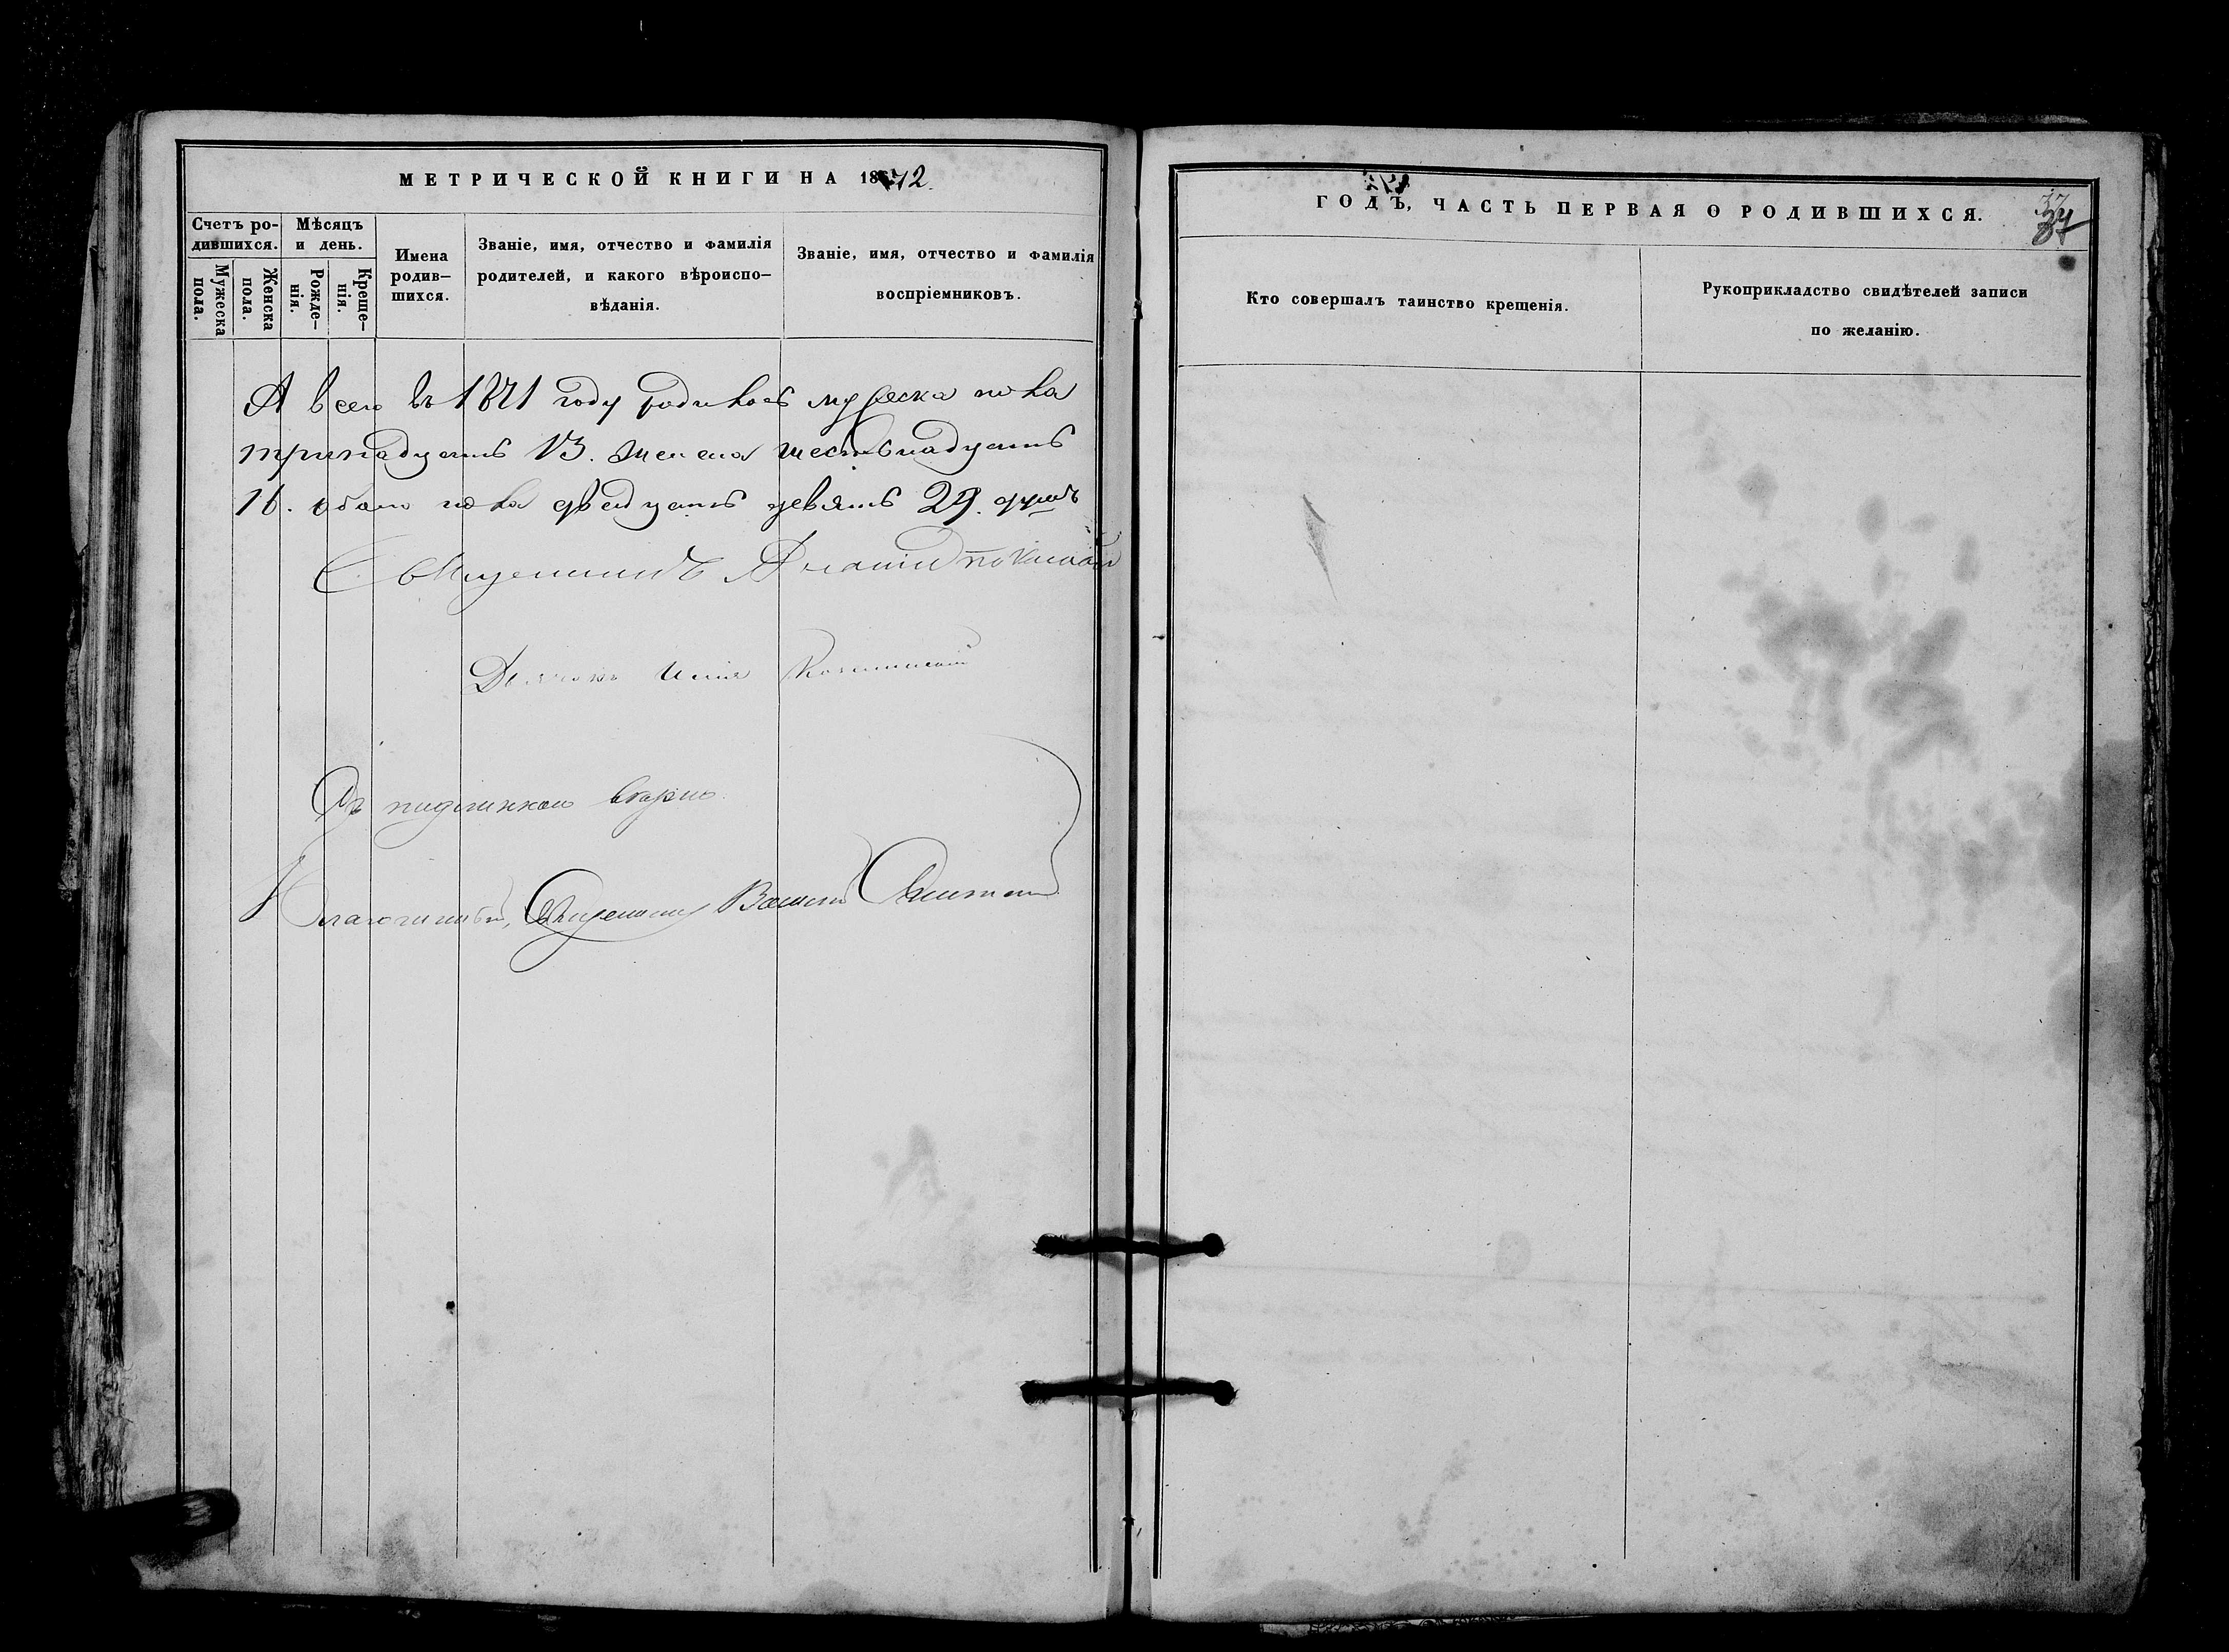 МЕТРИЧЕСКОЙ КНИГИ НА 1872.
Счетъ ро-
дившихся.
Мужеска
пола.
Женска
пола.
Мѣсяцъ
и день.
Рожде-
нія.
Креще-
нія.
Имена
родив-
шихся.
Званіе, имя, отчество и фамилія
родителей, и какого вѣроиспо-
вѣданія.
Званіе, имя, отчество и фамилія
воспріемниковъ.
А всего въ 1871 году родилось мужеска пола
тринадцать 13. женска шестьнадцать
16. обоего пола двадцать девять 29. душъ
Священникъ
Дьячокъ Илія
Съ подлинною вѣрно.
Благочинный, Священникъ
ГОДЪ, ЧАСТЬ ПЕРВАЯ О РОДИВШИХСЯ.
37
Кто совершалъ таинство крещенія.
Рукоприкладство свидѣтелей записи
по желанію.